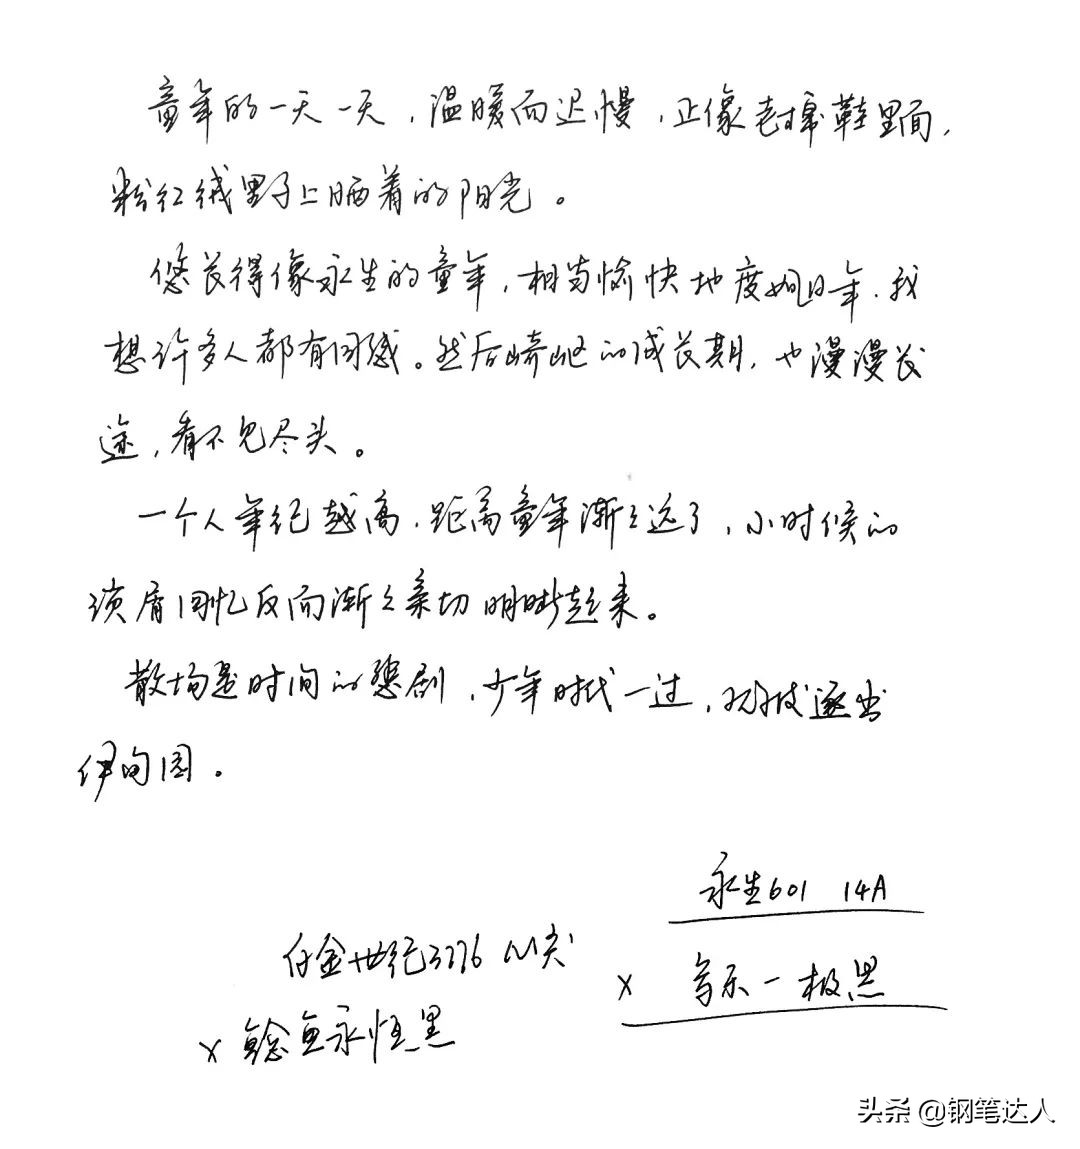 童年的一天一天，温暖而迟慢，正像老棉鞋里面，
粉红绒里子上晒着的阳光。
悠长得像永生的童年，相当愉快地度如年，我
想许多人都有同感。然后崎岖的成长期，也漫漫长
途，看不见尽头。
一个人年纪越高，距离童年渐渐远了，小时候的
琐屑回忆反而渐渐亲切明晰起来。
散场是时间的悲剧，少年时代一过，就被逐出
伊甸园。
永生601 14A
× 写乐－极黑
百金世纪3776 M尖
× 鲶鱼永恒黑
头条 @钢笔达人